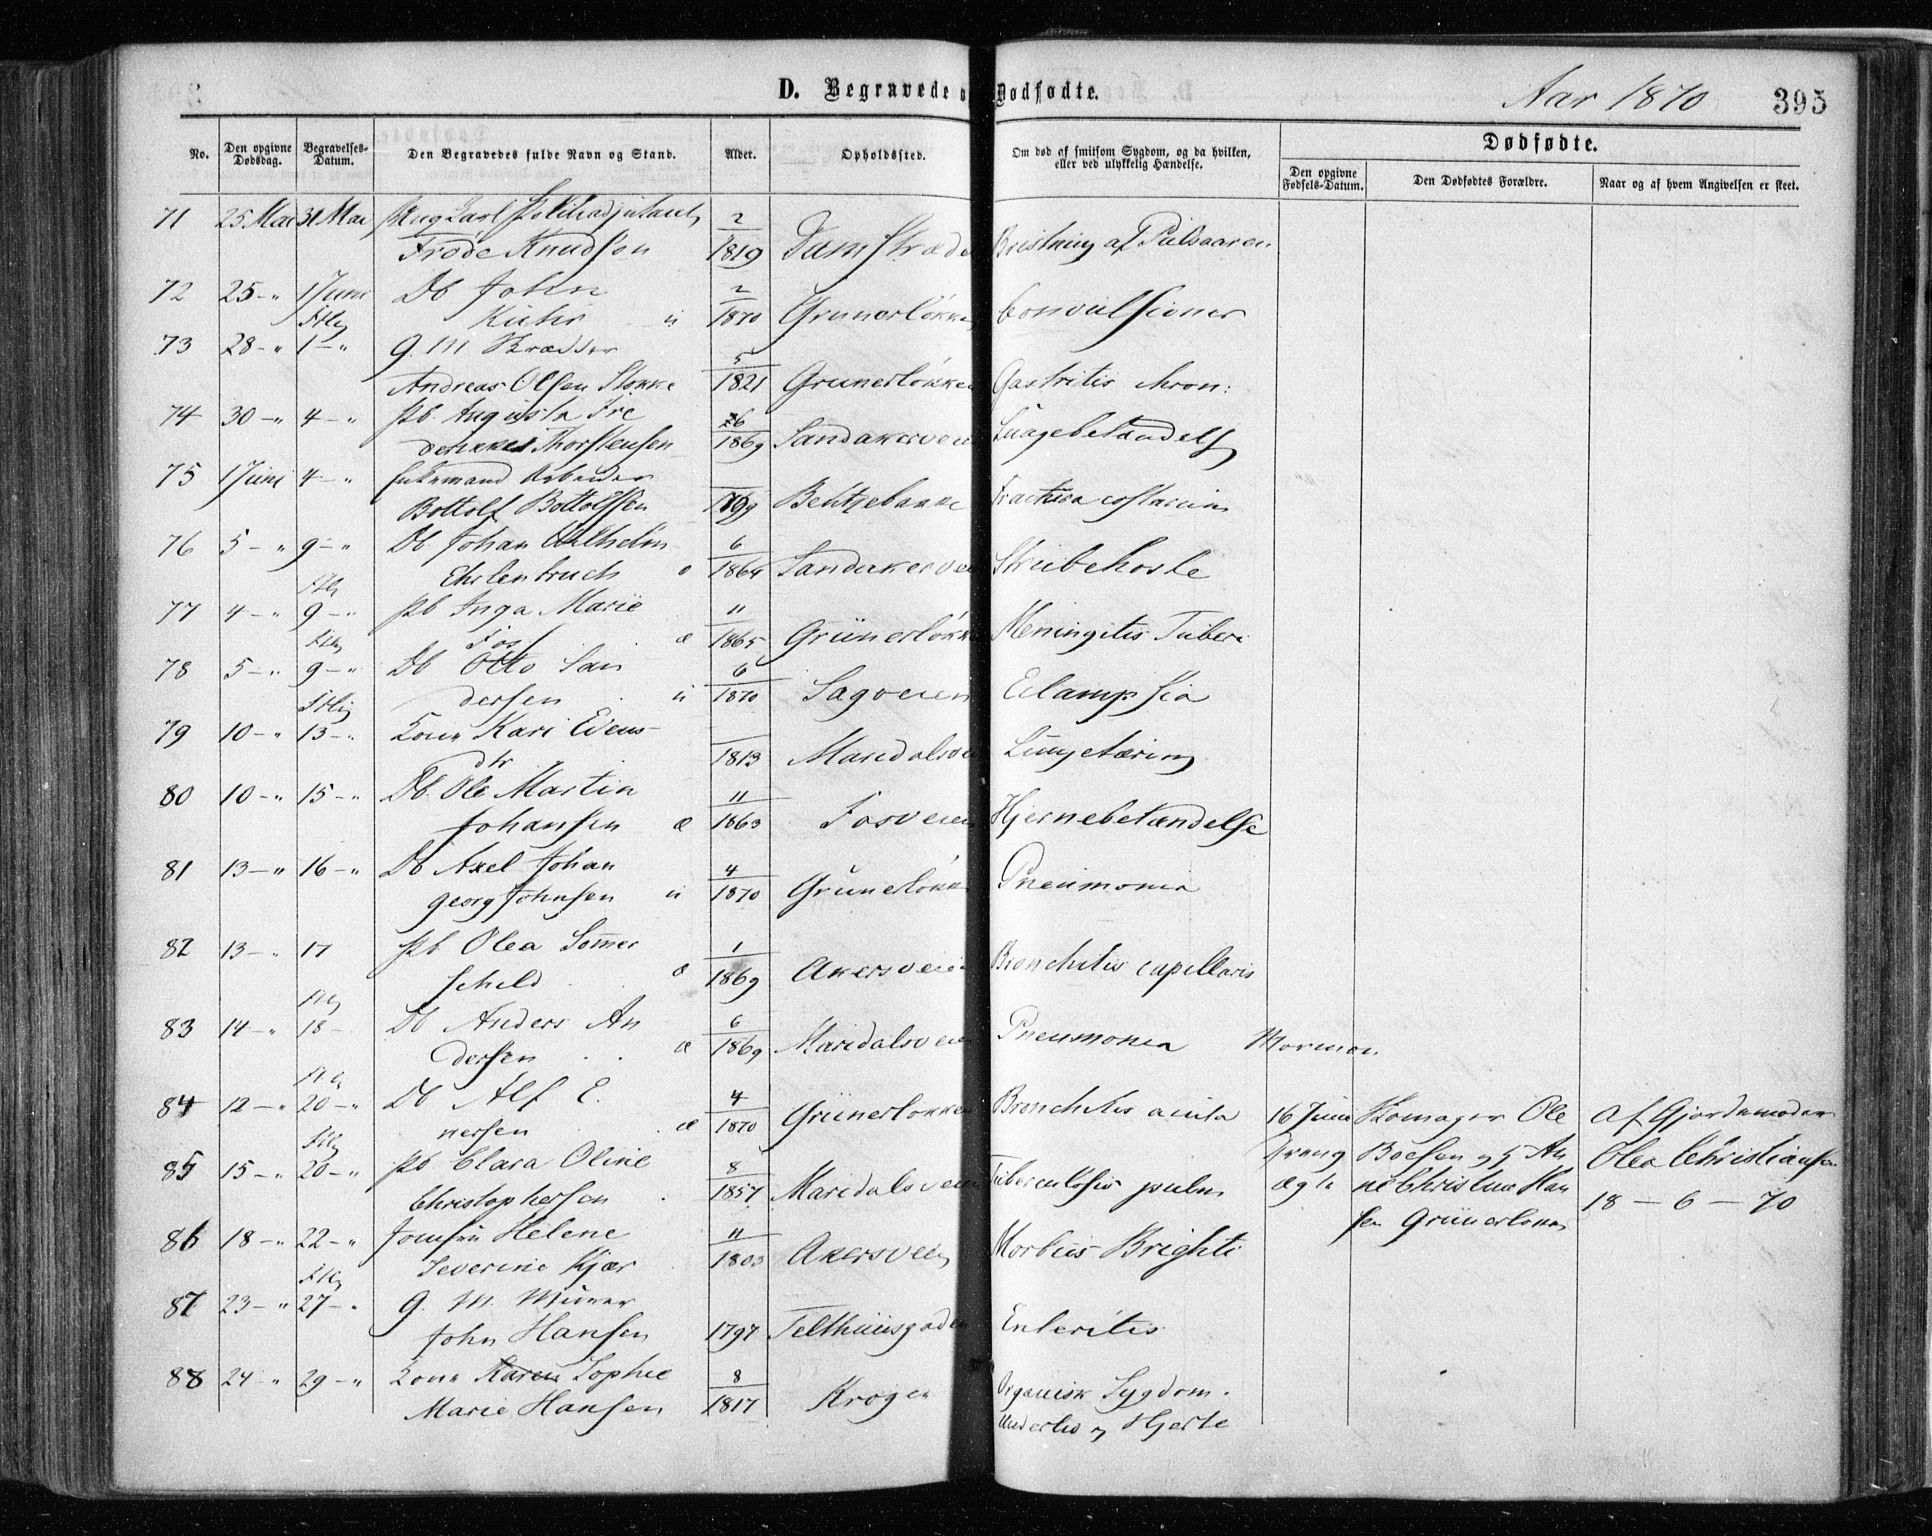 D. Begravede o Dødfødte.
Aar 1870
395
No.
Den opgivne Dødsdag.
Begravelses-Datum.
Den Begravedes fulde Navn og Stand.
Alder.
Opholdssted.
Om død af smitsom Sygdom, og da hvilken, eller ved ulykkelig Hændelse.
Dødfødte.
Den opgivne Fødsels-Datum.
Den Dødfødtes Forældre.
Naar og af hvem Angivelsen er skeet.
71 25 Mai 31 Mai Ung Carl Politiadjutant 2
Frode Knudson 1819 Damstræde Bristning af Pulsaaren
72 25 - " 1 Juni Db John 2
Kuhr u 1870 Grunerløkken Convulsioner
73 28 - " 1 - " G. M 5
Andreas Olsen Stokke 1821 Grunerløkken Gastritis chron:
74 30 - " 4 - " Pb Augusta Fre 6
derikke Thorstensen 1869 Sandakerveien Lungebetændelse
75 1 Juni 4 - " Enkemand Arbeider
Bottolf Bottolfsen 1799 Bentzebakke Fractura costarum
76 5 - " 9 - " Db Johan Wilhelm 6
Ehlenbruch 1864 Sandakerveien Strubehoste
77 4 - " 9 - " Pb Inga Marie 11
Foss æ 1865 Grünerløkken Meningitis Tuberc
78 5 - " 9 - " Db Otto San 6
dersen u 1870 Sagveien Eclampsia
79 10 - " 13 - " Kone Kari Evens-
dtr 1813 Maridalsveien Lungetæring
80 10 - " 15 - " Db. Ole Martin 11
Johansen æ 1863 Fosveien Hjernebetændelse
81 13 - " 16 - " Db Axel Johan 4
Georg Johnsen u 1870 Grunerløkken Pneumonia
82 13 - " 17 Pb Olea Sommer 1
schild æ 1869 Akersveien Bronchitis capillaris
83 14 - " 18 - Db Anders An 6
dersen æ 1869 Maridalsveien Pneumonia Mormon
84 12 - " 20 - " Db Alf E. 4
nersen æ 1870 Grünerløkken Bronchitis acuta
16 Juni Skomager Ole af Gjordemoder
Dreng Boesen og An Olea Christiansen
ægte ne Christine Han 18 - 6 - 70
sen Grünerløkken
85 15 - " 20 - " Pb Clara Oline 8
Christophersen 1857 Maridalsveien Tuberculosis pulm
86 18 - " 22 - " Jomfru Helene 11
Severine Kjær 1803 Akersveien Morbus Brighti
87 23 - " 27 - " G. M. Murer
John Hansen 1797 Telthusgaden Enteritis
88 24 - " 29 - " Kone Karen Sophie 8
Marie Hansen 1817 Krogen Organisk Sygdom i
Underliv og Hjerte